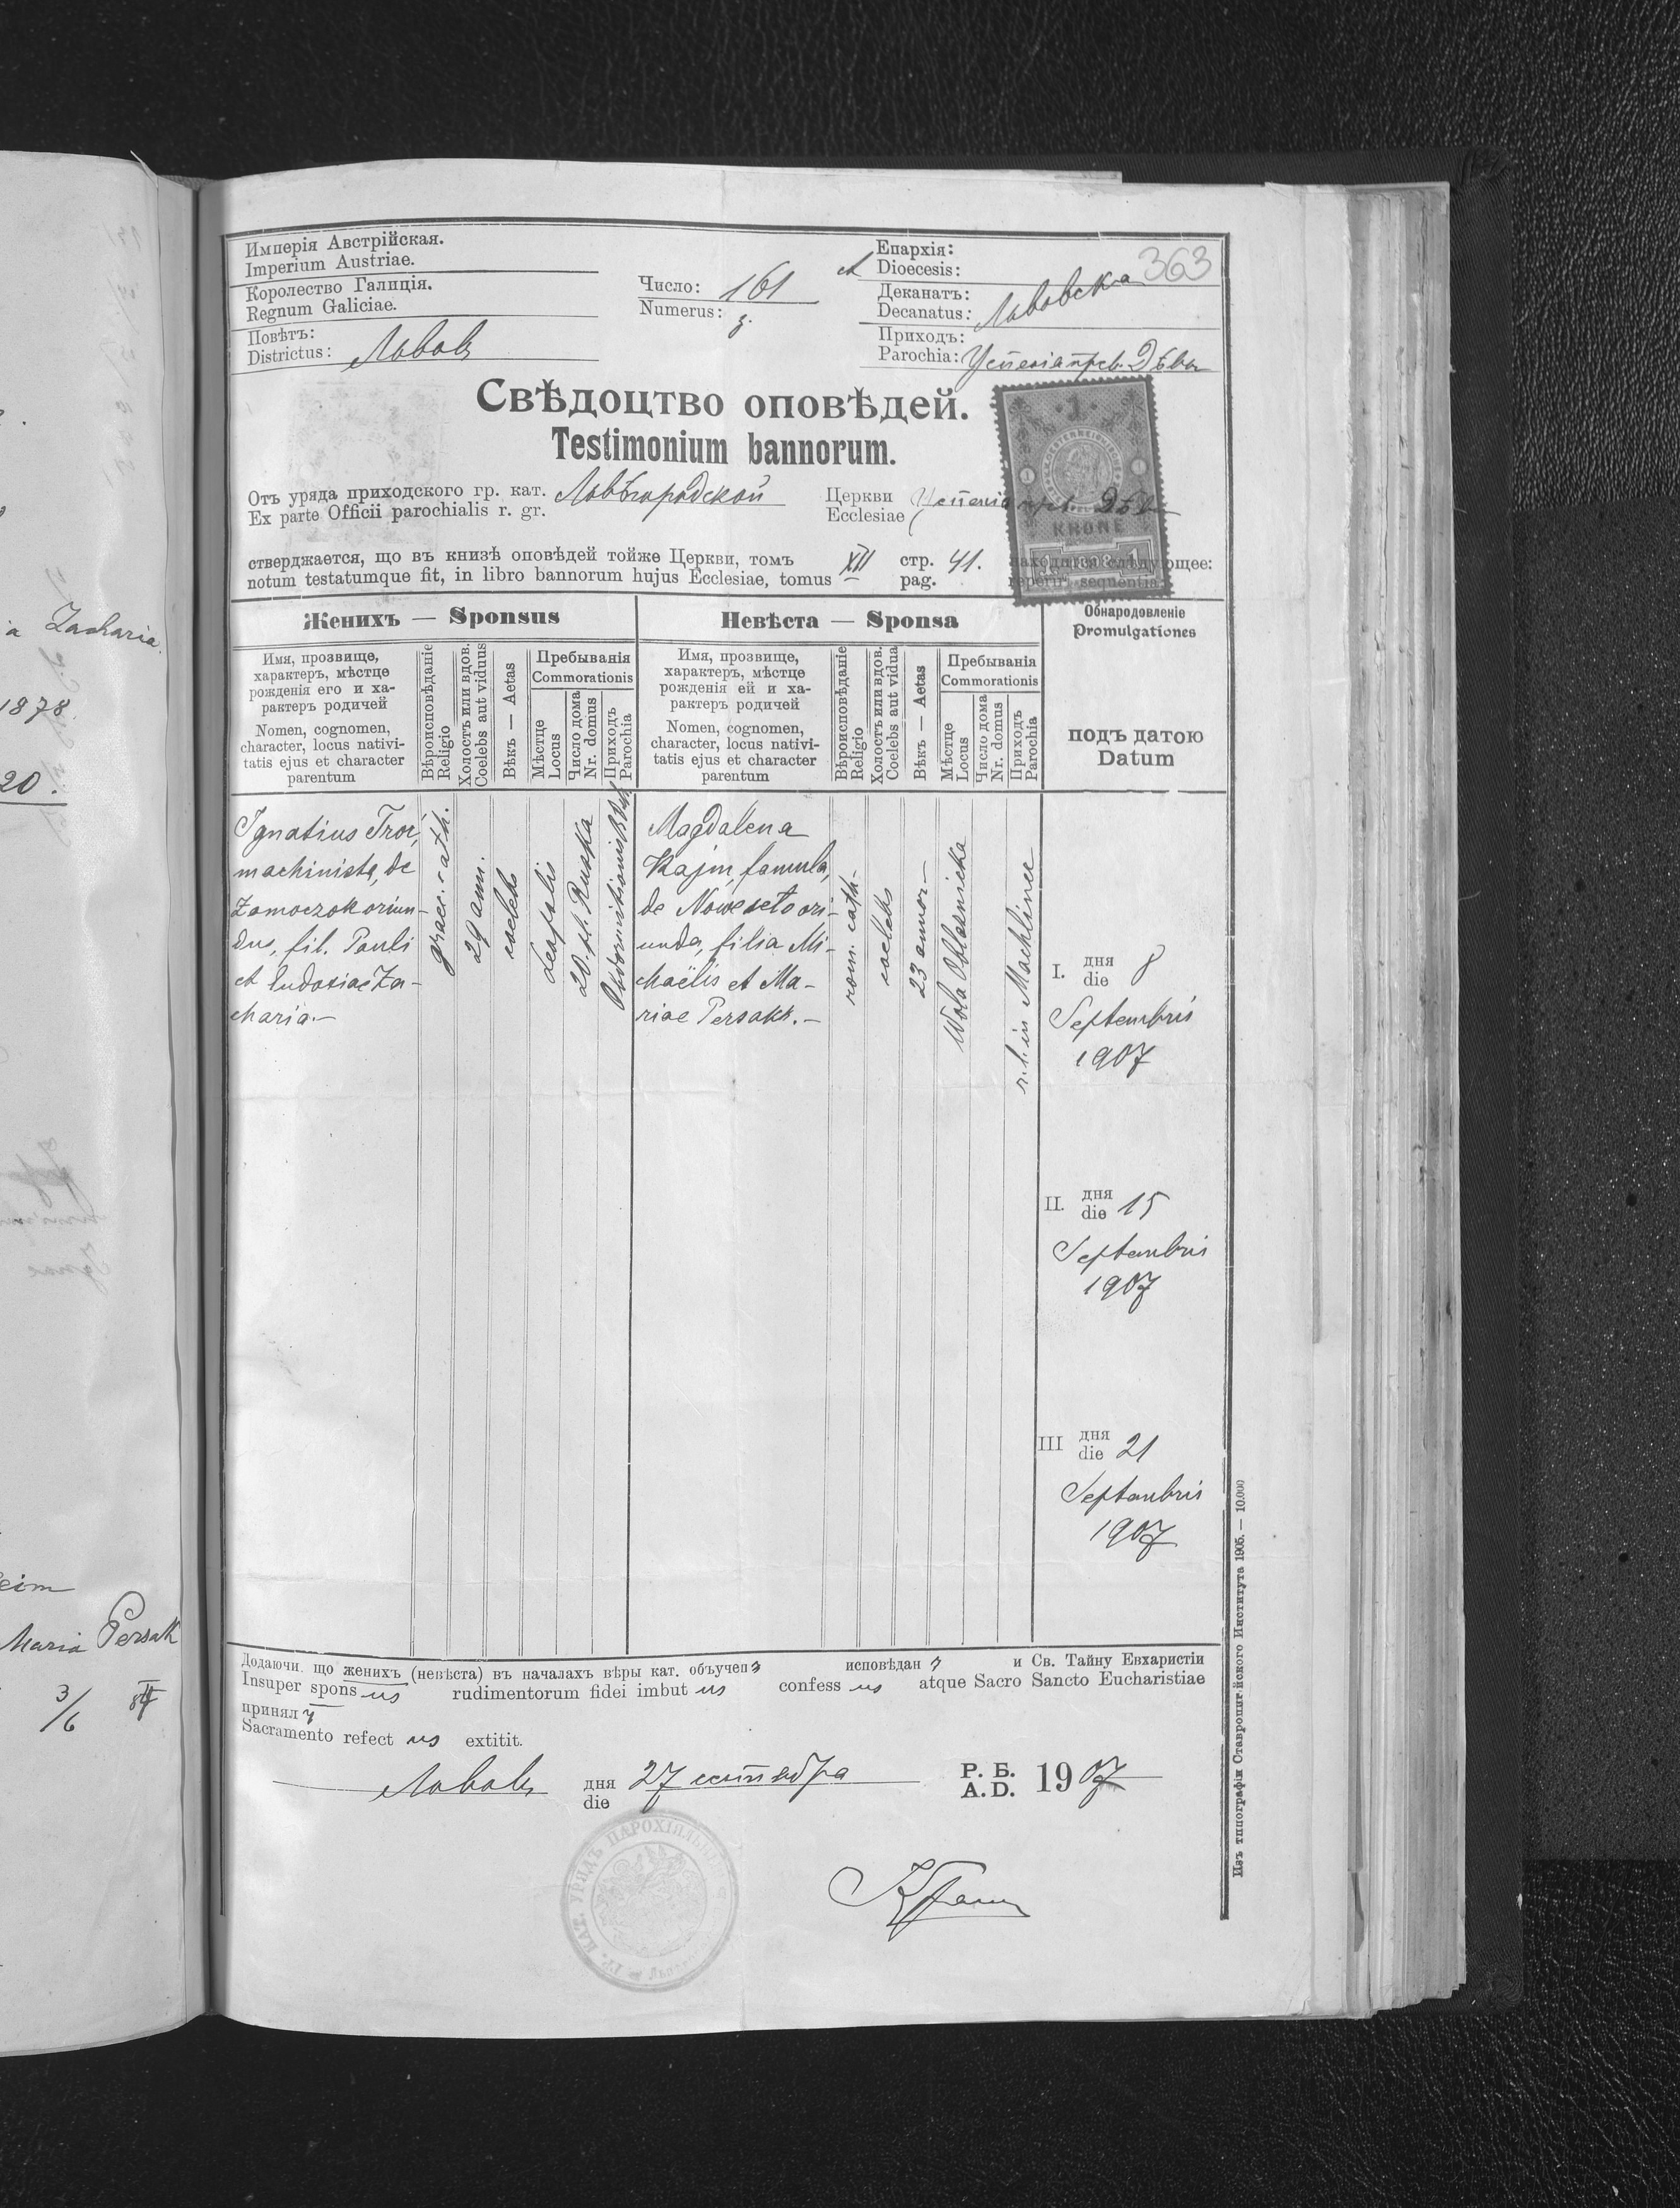 Имперія Австрійская.
Imperium Austriae.
Королество Галиція.
Regnum Galiciae.
Повѣтъ:
Districtus: Львовъ
Число: 161
Numerus: з.
Епархія:
Dioecesis:
Деканатъ:
Decanatus: Львовска
Приходъ:
Parochia: Успенія прсв. Дѣвы
363
Свѣдоцтво оповѣдей.
Testimonium bannorum.
1
KRONE
Отъ уряда приходского гр. кат. Церкви
Ex parte Officii parochialis r. gr. Ecclesiae Успенія прсв. Дѣвы
стверджается, що въ книзѣ оповѣдей тойже Церкви, томъ XII стр. 41. находится слѣдующее:
notum testatumque fit, in libro bannorum hujus Ecclesiae, tomus pag. reperiri sequentia:
Женихъ — Sponsus
Невѣста — Sponsa
Обнародовленіе
Promulgationes
Имя, прозвище,
характеръ, мѣстце
рожденія его и ха-
рактеръ родичей
Nomen, cognomen,
character, locus nativi-
tatis ejus et character
parentum
Вѣроисповѣданіе
Religio
Холостъ или вдов.
Coelebs aut viduus
Вѣкъ — Aetas
Пребыванія
Commorationis
Мѣстце
Locus
Число дома
Nr. domus
Приходъ
Parochia
Имя, прозвище,
характеръ, мѣстце
рожденія ей и ха-
рактеръ родичей
Nomen, cognomen,
character, locus nativi-
tatis ejus et character
parentum
Вѣроисповѣданіе
Religio
Холостъ или вдов.
Coelebs aut vidua
Вѣкъ — Aetas
Пребыванія
Commorationis
Мѣстце
Locus
Число дома
Nr. domus
Приходъ
Parochia
подъ датою
Datum
Ignatius Troć,
machinista, de
Zamoczok oriun-
dus, fil. Pauli
et Eudoxiae Za-
charia.—
graec. cath.
29 ann.
coelebs
Leopolis
20. pl. Ruska
Magdalena
Kajm, famula,
de Nowesioło ori-
unda, filia Mi-
chaëlis et Ma-
riae Persakk.—
rom. cath.
coelebs
23 annor—
Wola Oblasnicka
r. l. in Machlinec
I. дня
die 8
Septembris
1907
II. дня
die 15
Septembris
1907
III дня
die 21
Septembris
1907
Додаючи що женихъ (невѣста) въ началахъ вѣры кат. объучен исповѣдан и Св. Тайну Евхаристіи
Insuper spons us rudimentorum fidei imbut us confess us atque Sacro Sancto Eucharistiae
принял
Sacramento refect us extitit.
Львовъ дня 27 септебра Р. Б.
die A. D. 1907
Изъ типографіи Ставропигійского Института 1905. — 10.000
Zacharia.
1878.
20.
Maria Persak
3/6